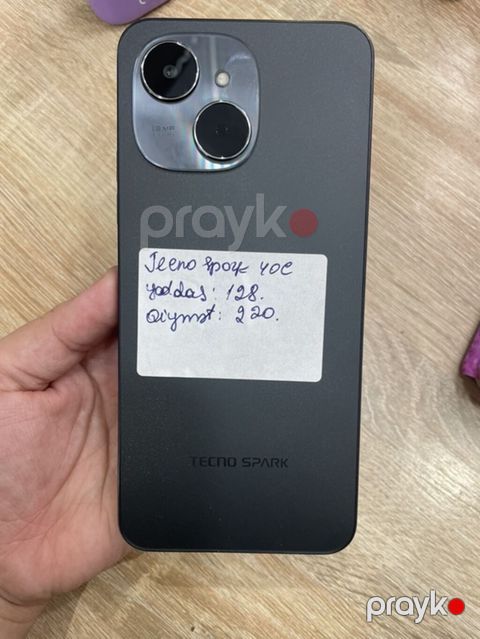 prayko
Tecno spark 40C
yaddaş: 128.
Qiymət: 220.
TECNO SPARK
prayko